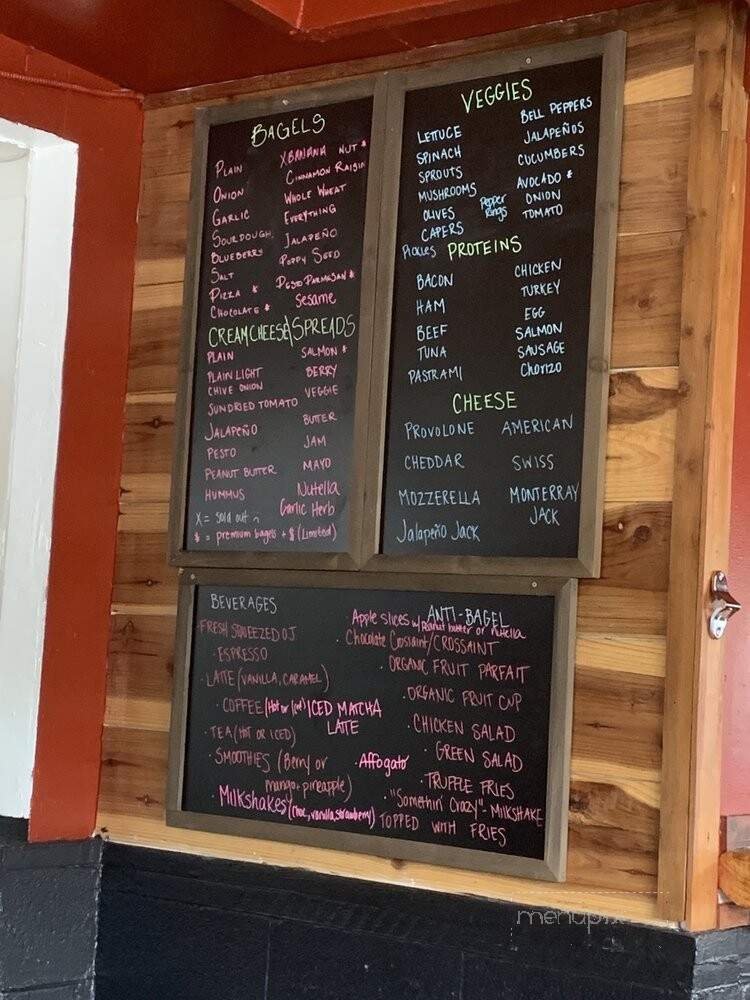 BAGELS
PLAIN
ONION
GARLIC
SOURDOUGH
BLUEBERRY
SALT
PIZZA *
CHOCOLATE *
X BANANA NUT *
CINNAMON RAISIN
WHOLE WHEAT
EVERYTHING
JALAPEÑO
POPPY SEED
PESTO PARMASAN *
Sesame
CREAMCHEESE\SPREADS
PLAIN
PLAIN LIGHT
CHIVE ONION
SUNDRIED TOMATO
JALAPEÑO
PESTO
PEANUT BUTTER
HUMMUS
SALMON *
BERRY
VEGGIE
BUTTER
JAM
MAYO
Nutella
Garlic Herb
X = sold out
* = premium bagels + $ (Limited)
VEGGIES
LETTUCE
SPINACH
SPROUTS
MUSHROOMS
OLIVES
CAPERS
Pickles
Pepper
Rings
BELL PEPPERS
JALAPEÑOS
CUCUMBERS
AVOCADO *
ONION
TOMATO
PROTEINS
BACON
HAM
BEEF
TUNA
PASTRAMI
CHICKEN
TURKEY
EGG
SALMON
SAUSAGE
Chorizo
CHEESE
PROVOLONE
CHEDDAR
MOZZERELLA
Jalapeño Jack
AMERICAN
SWISS
MONTERRAY
JACK
BEVERAGES
·FRESH SQUEEZED OJ
·ESPRESSO
·LATTE (VANILLA, CARAMEL)
·COFFEE (Hot or Iced) ICED MATCHA
LATTE
·TEA (HOT OR ICED)
·SMOOTHIES (Berry or
mango-pineapple)
·Affogato
·Milkshakes (choc, vanilla, strawberry)
ANTI-BAGEL
Apple slices w/peanut butter or nutella
·Chocolate Crossaint/CROSSAINT
·ORGANIC FRUIT PARFAIT
·ORGANIC FRUIT CUP
·CHICKEN SALAD
·GREEN SALAD
·TRUFFLE FRIES
·"Somethin' Crazy"- MILKSHAKE
TOPPED WITH FRIES